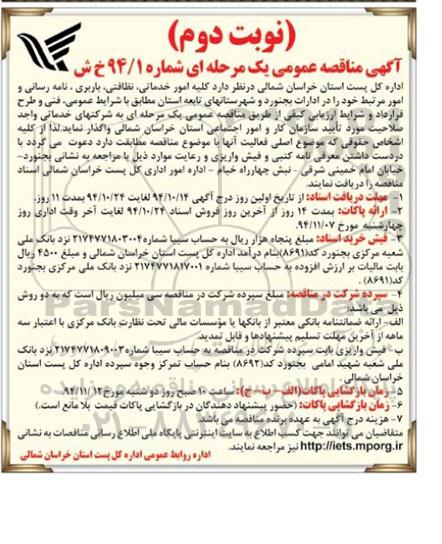 (نوبت دوم)
آگهی مناقصه عمومی یک مرحله ای شماره ۹۴/۱ خ ش
اداره کل پست استان خراسان شمالی درنظر دارد کلیه امور خدماتی، نظافتی، باربری ، نامه رسانی و
امور مرتبط خود را در ادارات بجنورد و شهرستانهای تابعه استان مطابق با شرایط عمومی، فنی و طرح
قرارداد و شرایط ارزیابی کیفی از طریق مناقصه عمومی یک مرحله ای به شرکتهای خدماتی واجد
صلاحیت مورد تأیید سازمان کار و امور اجتماعی استان خراسان شمالی واگذار نماید.لذا از کلیه
اشخاص حقوقی که موضوع اصلی فعالیت آنها با موضوع مناقصه مطابقت دارد دعوت می گردد با
دردست داشتن معرفی نامه کتبی و فیش واریزی و رعایت موارد ذیل با مراجعه به نشانی بجنورد-
خیابان امام خمینی شرقی - نبش چهارراه خیام - اداره امور اداری کل پست خراسان شمالی اسناد
مناقصه را دریافت نمایند.
۱- مهلت دریافت اسناد: از تاریخ اولین روز درج آگهی ۹۴/۱۰/۱۴ لغایت ۹۴/۱۰/۲۴ بمدت ۱۱ روز.
۲- ارائه پاکات: بمدت ۱۴ روز از آخرین روز فروش اسناد ۹۴/۱۰/۲۴ لغایت آخر وقت اداری روز
چهارشنبه مورخ ۹۴/۱۱/۰۷.
۳- فیش خرید اسناد: مبلغ پنجاه هزار ریال به حساب سیبا شماره ۲۱۷۴۷۷۱۸۰۳۰۰۴ نزد بانک ملی
شعبه مرکزی بجنورد کد(۸۶۹۱)بنام درآمد اداره کل پست استان خراسان شمالی و مبلغ ۴۵۰۰ ریال
بابت مالیات بر ارزش افزوده به حساب سیبا شماره ۲۱۷۴۷۷۱۸۱۷۰۰۱ نزد بانک ملی مرکزی بجنورد
کد(۸۶۹۱) .
۴- سپرده شرکت در مناقصه: مبلغ سپرده شرکت در مناقصه سی میلیون ریال است که به دو روش
ذیل می باشد:
الف- ارائه ضمانتنامه بانکی معتبر از بانکها یا مؤسسات مالی تحت نظارت بانک مرکزی با اعتبار سه
ماهه از آخرین مهلت تسلیم پیشنهادها و قابل تمدید.
ب- فیش واریزی بابت سپرده شرکت در مناقصه به حساب سیبا شماره ۲۱۷۴۷۷۱۸۰۹۰۰۲ نزد بانک
ملی شعبه شهید امامی بجنورد کد(۸۶۹۲) بنام حساب تمرکز وجوه سپرده اداره کل پست استان
خراسان شمالی.
۵- زمان بازگشایی پاکات(الف - ب - ج): ساعت ۱۰ صبح روز دو شنبه مورخ ۹۴/۱۱/۱۲.
۶- زمان بازگشایی پاکات: (حضور پیشنهاد دهندگان در بازگشایی پاکات قیمت بلا مانع است.)
۷- هزینه درج آگهی به عهده برنده مناقصه می باشد.
متقاضیان می توانند جهت کسب اطلاع به سایت اینترنتی پایگاه ملی اطلاع رسانی مناقصات به نشانی
http://iets.mporg.ir نیز مراجعه نمایند.
اداره روابط عمومی اداره کل پست استان خراسان شمالی